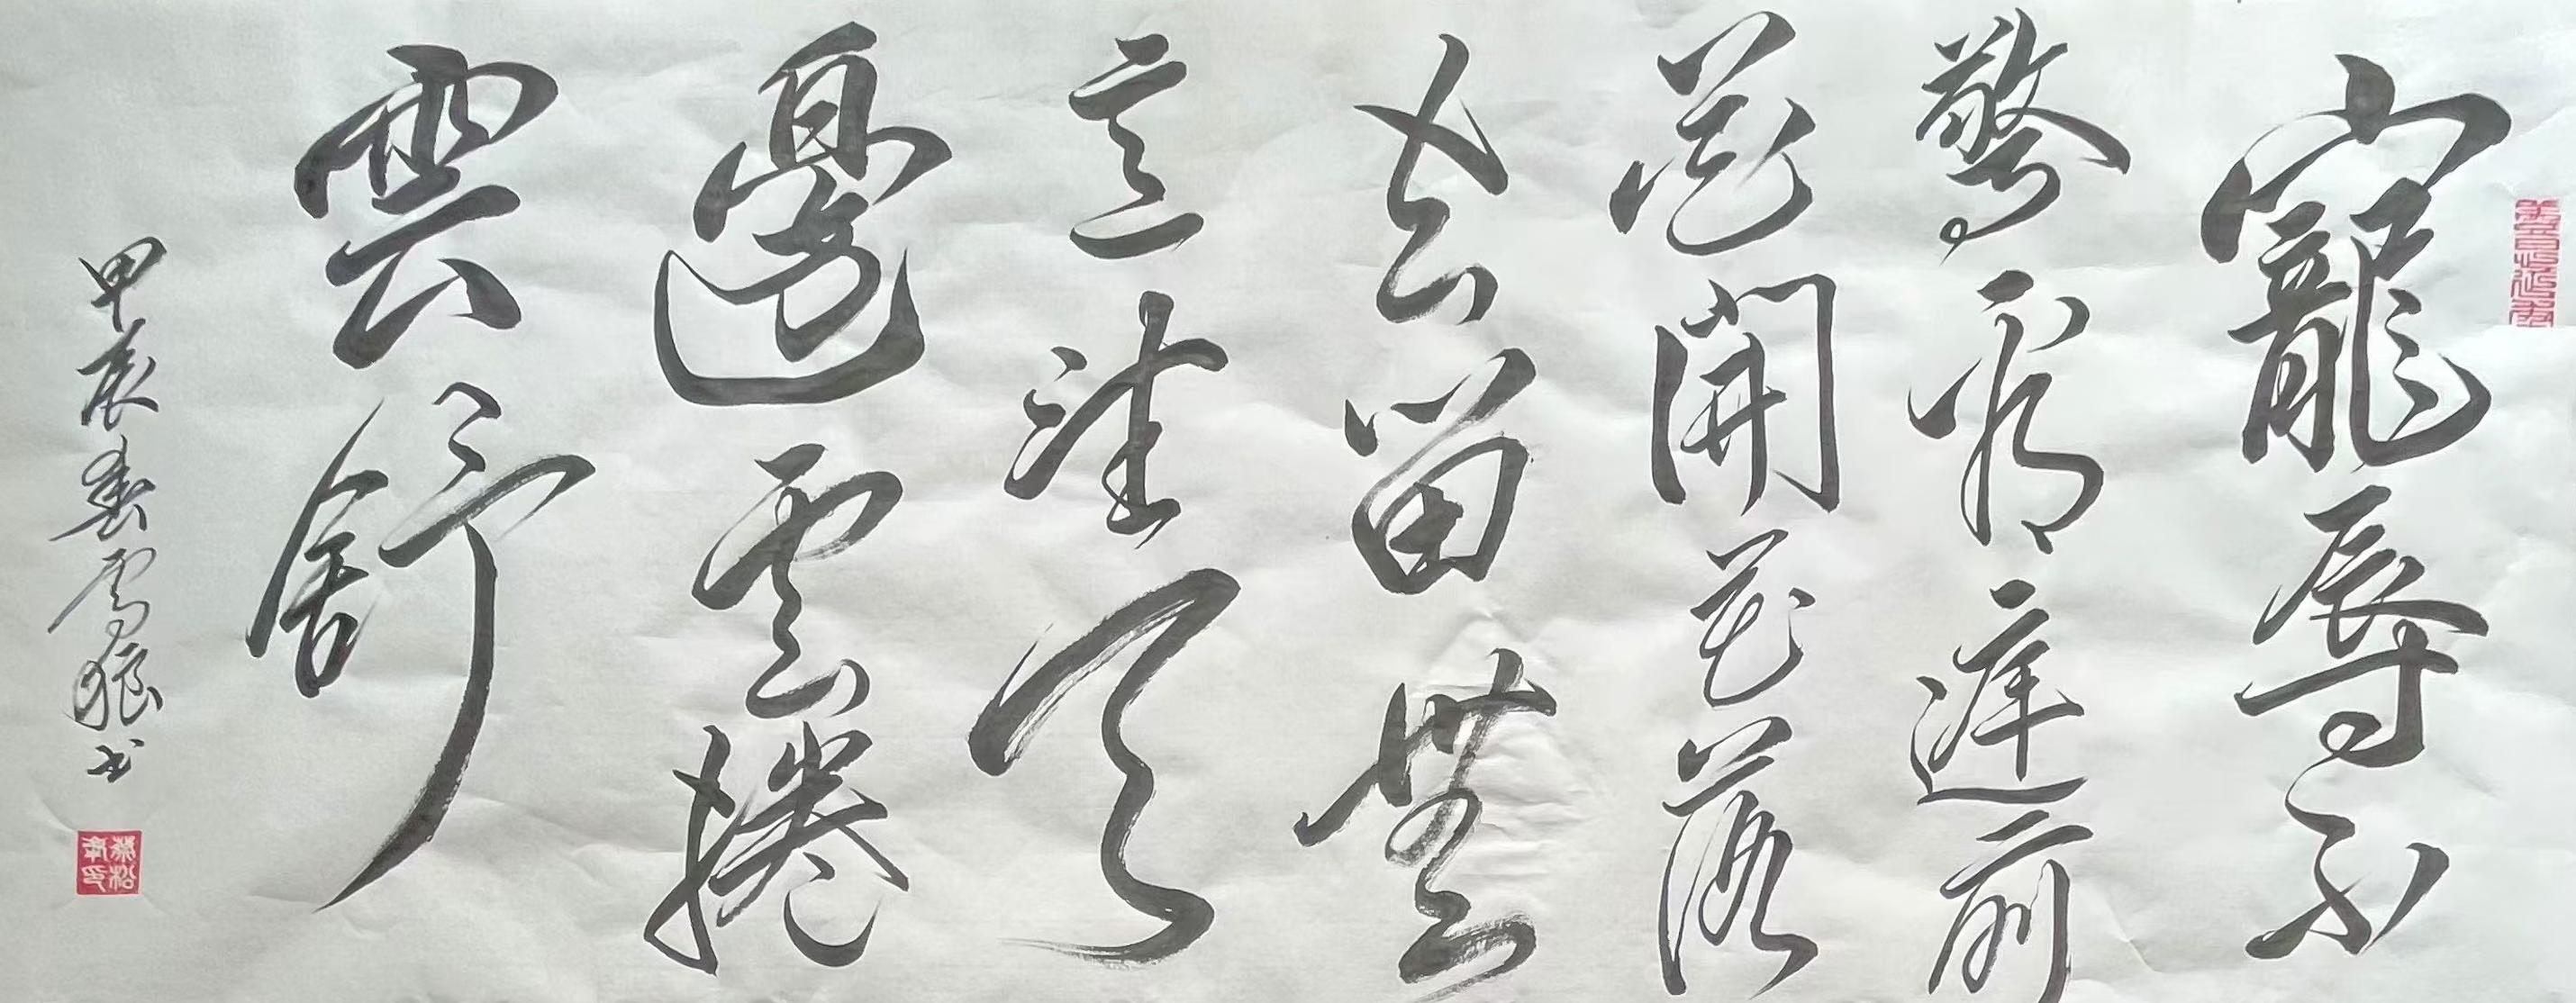 寵辱不
驚看庭前
花開花落
去留無
意望天
邊雲捲
雲舒
甲辰春雪狼书